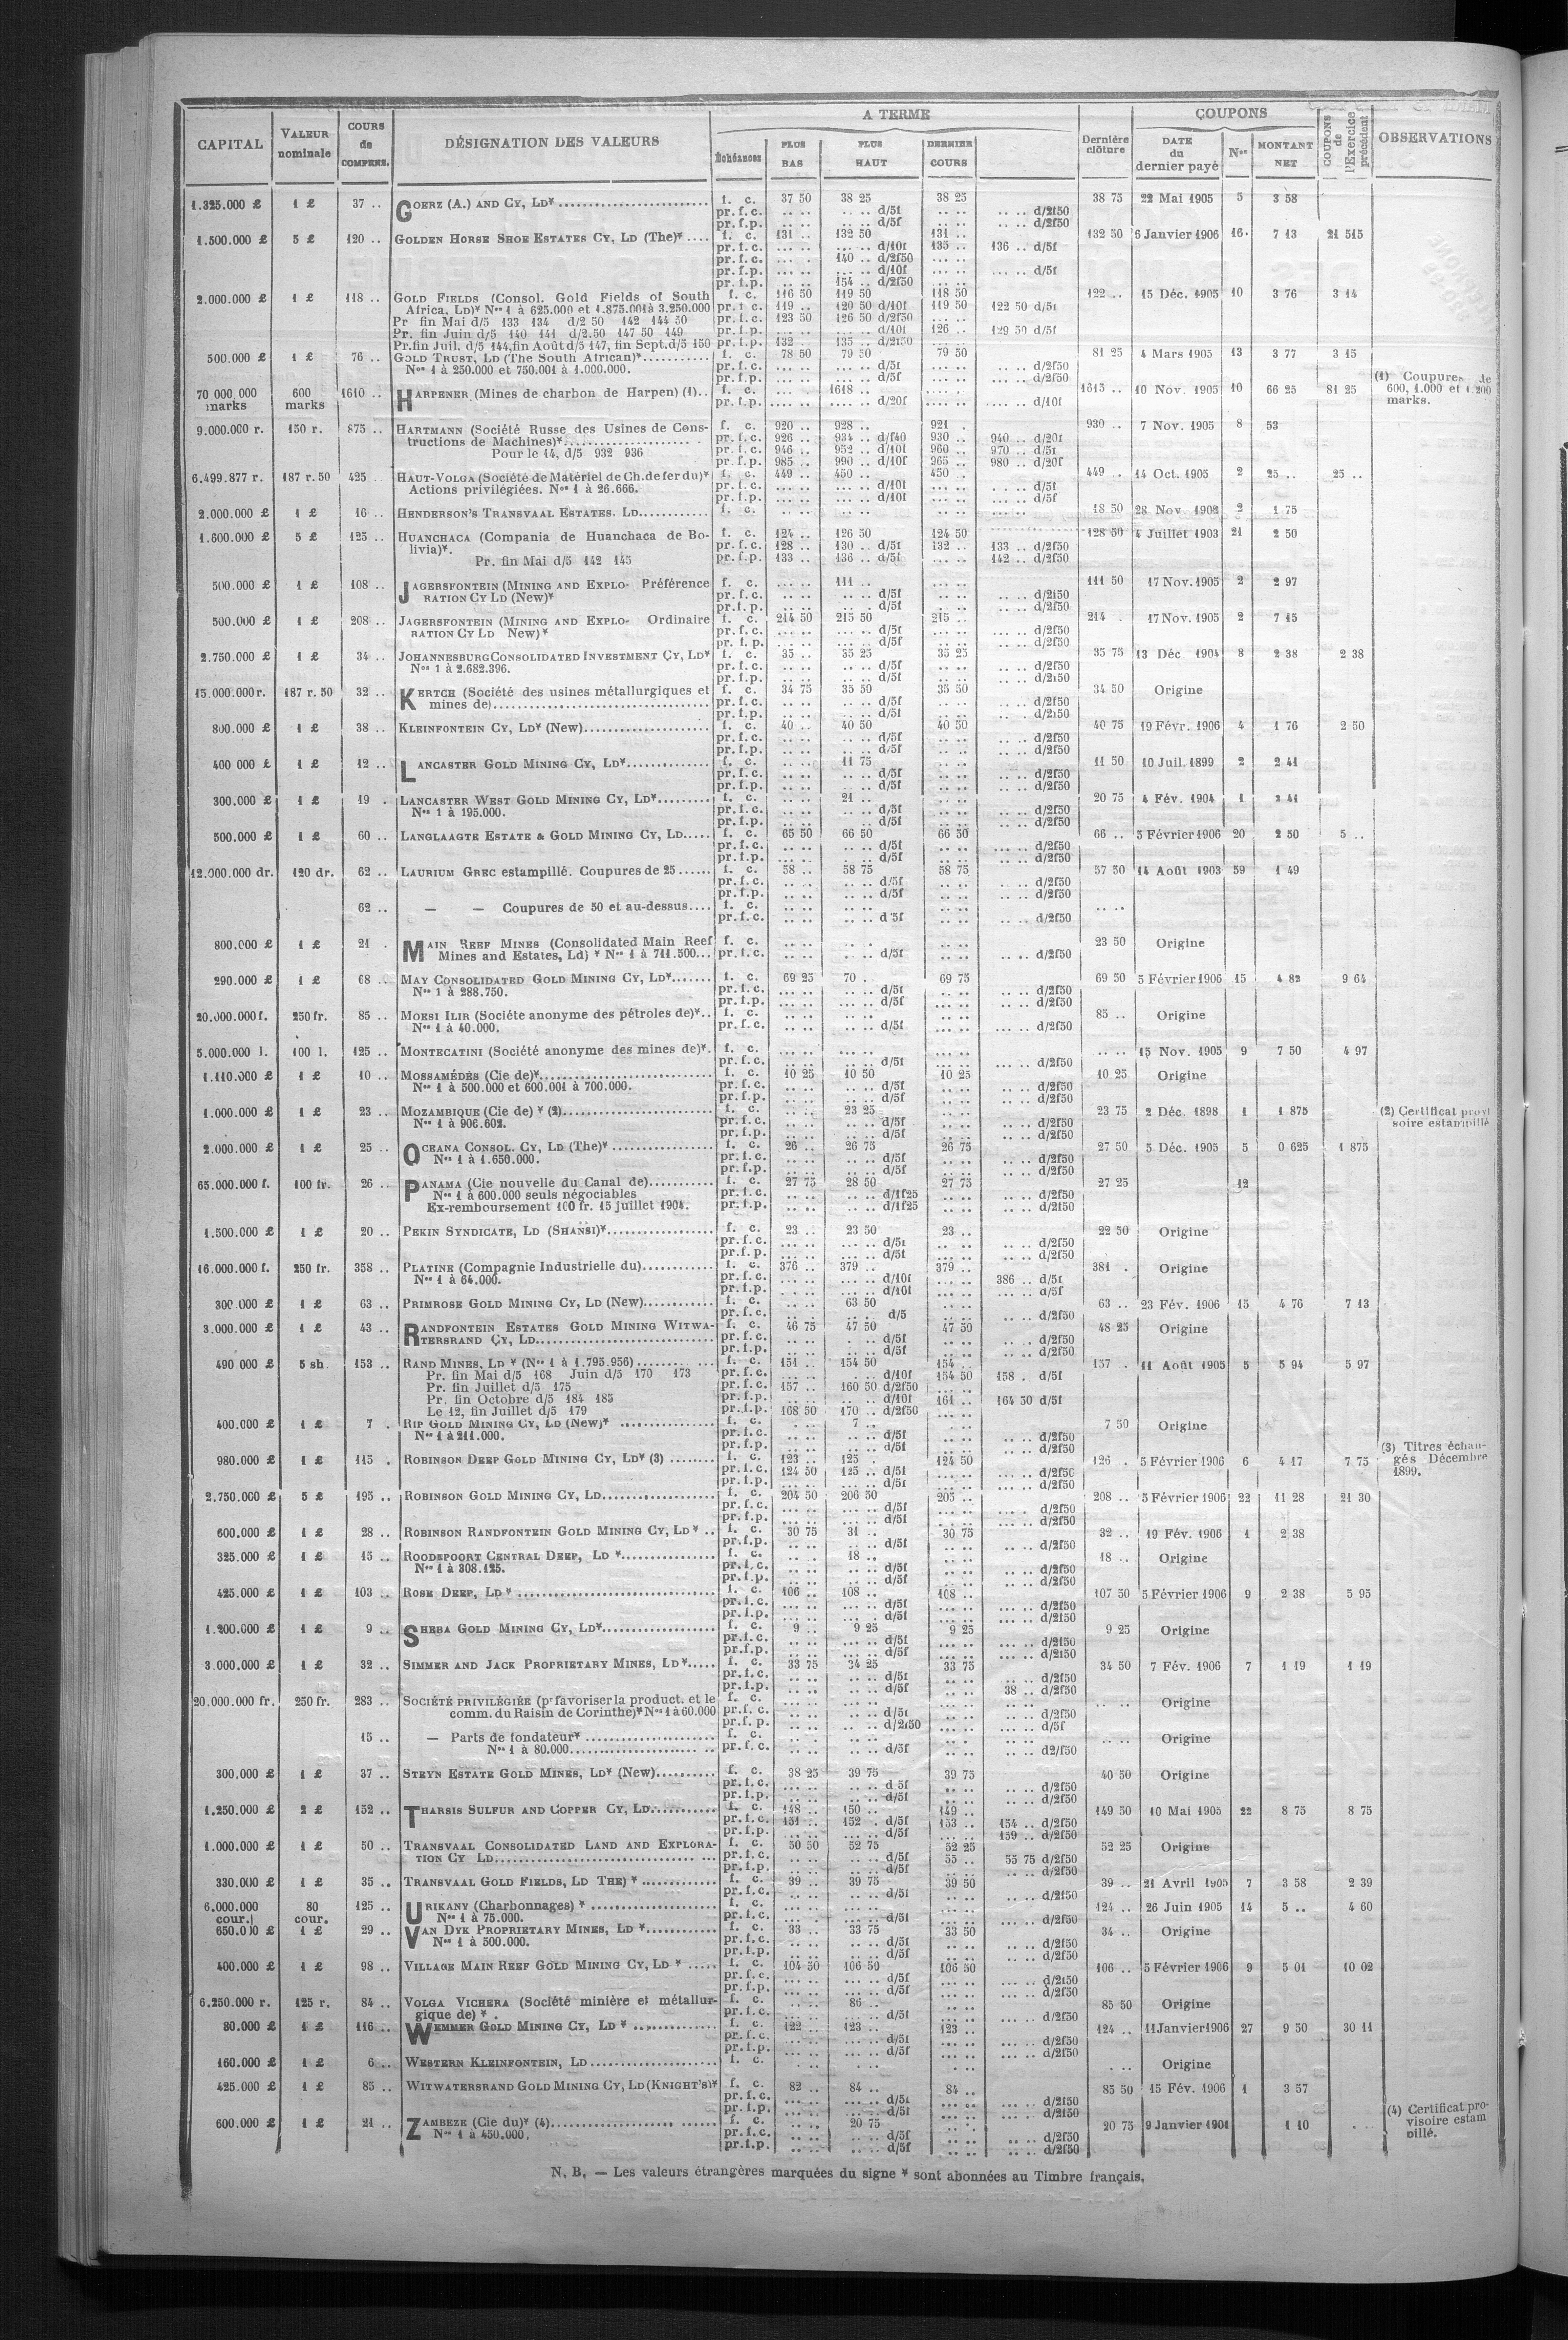 CAPITAL | VALEUR nominale | COURS de COMPENS. | DÉSIGNATION DES VALEURS | A TERME | Dernière clôture | COUPONS | COUPONS de l'Exercice précédent | OBSERVATIONS
Échéances | PLUS BAS | PLUS HAUT | DERNIER COURS | DATE du dernier payé | Nos | MONTANT NET
1.325.000 £ 1 £ 37 .. GOERZ (A.) AND CY, LD* f. c. 37 50 38 25 38 25 38 75 22 Mai 1905 5 3 58
pr. f. c. .. .. .. .. d/5f .. .. .. .. d/2f50
pr. f.p. .. .. .. .. d/5f .. .. .. .. d/2f50
1.500.000 £ 5 £ 120 .. GOLDEN HORSE SHOE ESTATES CY, LD (The)* .... f. c. 131 .. 132 50 131 .. 132 50 6 Janvier 1906 16. 7 13 21 515
pr. f. c. ... .. ... .. d/10f 135 .. 136 .. d/5f
pr. f. c. ... .. 140 .. d/2f50 ... ..
pr. f.p. ... .. ... .. d/10f ... .. ... .. d/5f
pr. f.p. ... .. 154 .. d/2f50 ... ..
2.000.000 £ 1 £ 118 .. GOLD FIELDS (Consol. Gold Fields of South f. c. 116 50 119 50 118 50 122 .. 15 Déc. 1905 10 3 76 3 14
Africa, LD)* Nos 1 à 625.000 et 1.875.001 à 3.250.000 pr. f. c. 119 .. 120 50 d/10f 119 50 122 50 d/5f
Pr fin Mai d/5 133 134 d/2 50 142 144 50 pr. f. c. 123 50 126 50 d/2f50 ... ..
Pr. fin Juin d/5 140 141 d/2.50 147 50 149 pr. f.p. ... .. ... .. d/10f 126 .. 129 50 d/5f
Pr. fin Juil. d/5 144, fin Août d/5 147, fin Sept. d/5 150 pr. f.p. 132 .. 135 .. d/2f50 ... ..
500.000 £ 1 £ 76 .. GOLD TRUST, LD (The South African)* f. c. 78 50 79 50 79 50 81 25 4 Mars 1905 13 3 77 3 15
Nos 1 à 250.000 et 750.001 à 1.000.000. pr. f. c. .. .. .. .. d/5f .. .. .. .. d/2f50
pr. f.p. .. .. .. .. d/5f .. .. .. .. d/2f50
70 000 000 marks 600 marks 1610 .. HARPENER (Mines de charbon de Harpen) (1).. f. c. ... . 1618 .. .... . 1615 .. 10 Nov. 1905 10 66 25 81 25 (1) Coupures de 600, 1.000 et 1.200 marks.
pr. f.p. .... .. .... .. d/20f .... .. .... .. d/10f
9.000.000 r. 150 r. 875 .. HARTMANN (Société Russe des Usines de Cons- f. c. 920 .. 928 .. 921 . 930 .. 7 Nov. 1905 8 53
tructions de Machines)* pr. f. c. 926 .. 934 .. d/f40 930 .. 940 .. d/20f
Pour le 14, d/5 932 936 pr. f. c. 946 .. 952 .. d/10f 960 .. 970 .. d/5f
pr. f.p. 985 .. 990 .. d/10f 965 .. 980 .. d/20f
6.499.877 r. 187 r. 50 425 HAUT-VOLGA (Société de Matériel de Ch. de fer du)* f. c. 449 .. 450 .. 450 .. 449 . 14 Oct. 1905 2 25 .. 25 ..
Actions privilégiées. Nos 1 à 26.666. pr. f. c. ... .. ... .. d/10f ... .. ... .. d/5f
pr. f.p. ... .. ... .. d/10f ... .. ... .. d/5f
2.000.000 £ 1 £ 16 .. HENDERSON'S TRANSVAAL ESTATES. LD f. c. .. .. .. .. .. .. 18 50 28 Nov 1902 2 1 75
1.600.000 £ 5 £ 125 .. HUANCHACA (Compania de Huanchaca de Bo- f. c. 124 .. 126 50 124 50 128 50 4 Juillet 1903 21 2 50
livia)*. pr. f. c. 128 .. 130 .. d/5f 132 .. 133 .. d/2f50
Pr. fin Mai d/5 142 145 pr. f.p. 133 .. 136 .. d/5f ... .. 142 .. d/2f50
500.000 £ 1 £ 108 .. JAGERSFONTEIN (MINING AND EXPLO- Préférence f. c. ... .. 111 .. ... .. 111 50 17 Nov. 1905 2 2 97
RATION CY LD (New)* pr. f. c. .. .. .. .. d/5f .. .. .. .. d/2f50
pr. f.p. .. .. .. .. d/5f .. .. .. .. d/2f50
500.000 £ 1 £ 208 .. JAGERSFONTEIN (MINING AND EXPLO- Ordinaire f. c. 214 50 215 50 215 .. 214 . 17 Nov. 1905 2 7 15
RATION CY LD New)* pr. f. c. ... .. ... .. d/5f ... .. ... .. d/2f50
pr. f. p. ... .. ... .. d/5f ... .. ... .. d/2f50
2.750.000 £ 1 £ 34 .. JOHANNESBURG CONSOLIDATED INVESTMENT CY, LD* f. c. 35 .. 35 25 35 25 35 75 13 Déc 1904 8 2 38 2 38
Nos 1 à 2.682.396. pr. f. c. .. .. .. .. d/5f .. .. .. .. d/2f50
pr. f.p. .. .. .. .. d/5f .. .. .. .. d/2f50
15.000.000 r. 187 r. 50 32 .. KERTCH (Société des usines métallurgiques et f. c. 34 75 35 50 35 50 34 50 Origine
mines de) pr. f. c. .. .. .. .. d/5f .. .. .. .. d/2f50
pr. f.p. .. .. .. .. d/5f .. .. .. .. d/2f50
800.000 £ 1 £ 38 .. KLEINFONTEIN CY, LD* (New) f. c. 40 .. 40 50 40 50 40 75 19 Févr. 1906 4 1 76 2 50
pr. f. c. .. .. .. .. d/5f .. .. .. .. d/2f50
pr. f.p. .. .. .. .. d/5f .. .. .. .. d/2f50
400 000 £ 1 £ 12 .. LANCASTER GOLD MINING CY, LD* f. c. .. .. 11 75 .. .. 11 50 10 Juil. 1899 2 2 41
pr. f. c. .. .. .. .. d/5f .. .. .. .. d/2f50
pr. f.p. .. .. .. .. d/5f .. .. .. .. d/2f50
300.000 £ 1 £ 19 . LANCASTER WEST GOLD MINING CY, LD* f. c. .. .. 21 .. .. .. 20 75 4 Fév. 1904 1 2 41
Nos 1 à 195.000. pr. f. c. .. .. .. .. d/5f .. .. .. .. d/2f50
pr. f.p. .. .. .. .. d/5f .. .. .. .. d/2f50
500.000 £ 1 £ 60 .. LANGLAAGTE ESTATE & GOLD MINING CY, LD f. c. 65 50 66 50 66 50 66 .. 5 Février 1906 20 2 50 5 ..
pr. f. c. ... .. .. .. d/5f ... .. ... .. d/2f50
pr. f.p. ... .. .. .. d/5f ... .. ... .. d/2f50
12.000.000 dr. 120 dr. 62 .. LAURIUM GREC estampillé. Coupures de 25 f. c. 58 .. 58 75 58 75 57 50 14 Août 1903 59 1 49
pr. f. c. .. .. .. .. d/5f .. .. .. .. d/2f50
pr. f.p. .. .. .. .. d/5f .. .. .. .. d/2f50
62 .. — — Coupures de 50 et au-dessus.... f. c. .. .. .. .. .. .. .. ..
pr. f. c. .. .. .. .. d 5f .. .. .. .. d/2f50
800.000 £ 1 £ 21 . MAIN REEF MINES (Consolidated Main Reef f. c. .. .. .. .. .. .. 23 50 Origine
Mines and Estates, Ld) * Nos 1 à 711.500... pr. f. c. .. .. .. .. d/5f .. .. .. .. d/2f50
290.000 £ 1 £ 68 .. MAY CONSOLIDATED GOLD MINING CY, LD* f. c. 69 25 70 . 69 75 69 50 5 Février 1906 15 4 82 9 64
Nos 1 à 288.750. pr. f. c. ... .. ... .. d/5f .. .. .. .. d/2f50
pr. f.p. ... .. ... .. d/5f .. .. .. .. d/2f50
20.000.000 f. 250 fr. 85 .. MOESI ILIR (Sociéte anonyme des pétroles de)*.. f. c. .. .. .. .. .. .. 85 .. Origine
Nos 1 à 40.000. pr. f. c. .. .. .. .. d/5f .. .. ... .. d/2f50
5.000.000 l. 100 l. 125 .. MONTECATINI (Société anonyme des mines de)*. f. c. ... .. ... .. ... .. .. .. 15 Nov. 1905 9 7 50 4 97
pr. f. c. ... .. ... .. d/5f ... .. ... .. d/2f50
1.110.000 £ 1 £ 10 .. MOSSAMÉDÈS (Cie de)* f. c. 10 25 10 50 10 25 10 25 Origine
Nos 1 à 500.000 et 600.001 à 700.000. pr. f. c. .. .. .. .. d/5f .. .. .. .. d/2f50
pr. f.p. .. .. .. .. d/5f .. .. .. .. d/2f50
1.000.000 £ 1 £ 23 .. MOZAMBIQUE (Cie de) * (2) f. c. .. .. 23 25 23 75 2 Déc. 1898 1 1 875 (2) Certificat provi soire estampillé
Nos 1 à 906.602. pr. f. c. .. .. .. .. d/5f .. .. .. .. d/2f50
pr. f.p. .. .. .. .. d/5f .. .. .. .. d/2f50
2.000.000 £ 1 £ 25 .. OCEANA CONSOL. CY, LD (The)* f. c. 26 .. 26 75 26 75 27 50 5 Déc. 1905 5 0 625 1 875
Nos 1 à 1.650.000. pr. f. c. .. .. .. .. d/5f .. .. .. .. d/2f50
pr. f.p. .. .. .. .. d/5f .. .. .. .. d/2f50
65.000.000 f. 100 fr. 26 .. PANAMA (Cie nouvelle du Canal de) f. c. 27 75 28 50 27 75 27 25 12
Nos 1 à 600.000 seuls négociables pr. f. c. .. .. .. .. d/1f25 .. .. .. .. d/2f50
Ex-remboursement 100 fr. 15 juillet 1904. pr. f.p. .. .. .. .. d/1f25 .. .. .. .. d/2f50
1.500.000 £ 1 £ 20 .. PEKIN SYNDICATE, LD (SHANSI)* f. c. 23 .. 23 50 23 .. 22 50 Origine
pr. f. c. ... .. ... .. d/5f .. .. .. .. d/2f50
pr. f. p. ... .. ... .. d/5f ... .. .. .. d/2f50
16.000.000 f. 250 fr. 358 .. PLATINE (Compagnie Industrielle du) f. c. 376 .. 379 .. 379 .. 381 . Origine
Nos 1 à 64.000. pr. f. c. ... .. ... .. d/10f ... .. 386 .. d/5f
pr. f.p. ... .. ... .. d/10f ... .. ... .. d/5f
300.000 £ 1 £ 63 .. PRIMROSE GOLD MINING CY, LD (New) f. c. .. .. 63 50 .. .. 63 .. 23 Fév. 1906 15 4 76 7 13
pr. f. c. ... .. .. . d/5 ... .. ... .. d/2f50
3.000.000 £ 1 £ 43 .. RANDFONTEIN ESTATES GOLD MINING WITWA- f. c. 46 75 47 50 47 50 48 25 Origine
TERSRAND CY, LD pr. f. c. .. .. .. .. d/5f .. .. .. .. d/2f50
pr. f.p. .. .. .. .. d/5f .. .. .. .. d/2f50
490 000 £ 5 sh 153 .. RAND MINES, LD * (Nos 1 à 1.795.956) f. c. 151 .. 154 50 154 .. 157 . 11 Août 1905 5 5 94 5 97
Pr. fin Mai d/5 168 Juin d/5 170 173 pr. f. c. ... .. ... .. d/10f 154 50 158 . d/5f
Pr. fin Juillet d/5 175 pr. f. c. 157 .. 160 50 d/2f50 ... ..
Pr. fin Octobre d/5 184 185 pr. f.p. ... .. ... .. d/10f 161 .. 164 50 d/5f
Le 12, fin Juillet d/5 179 pr. f.p. 168 50 170 .. d/2f50 ... ..
400.000 £ 1 £ 7 . RIP GOLD MINING CY, LD (New)* f. c. . .. 7 .. . .. 7 50 Origine
Nos 1 à 211.000. pr. f. c. .. .. .. .. d/5f .. .. .. .. d/2f50
pr. f.p. .. .. .. .. d/5f .. .. .. .. d/2f50
980.000 £ 1 £ 115 . ROBINSON DEEP GOLD MINING CY, LD* (3) f. c. 123 .. 125 . 124 50 126 . 5 Février 1906 6 4 17 7 75 (3) Titres échan- gés Décembre 1899.
pr. f. c. 124 50 125 .. d/5f ... .. ... .. d/2f50
pr. f.p. ... .. ... .. d/5f ... .. ... .. d/2f50
2.750.000 £ 5 £ 195 .. ROBINSON GOLD MINING CY, LD f. c. 204 50 206 50 205 .. 208 .. 5 Février 1906 22 11 28 21 30
pr. f. c. ... .. ... .. d/5f ... .. ... . d/2f50
pr. f.p. ... .. ... .. d/5f ... .. ... .. d/2f50
600.000 £ 1 £ 28 .. ROBINSON RANDFONTEIN GOLD MINING CY, LD * .. f. c. 30 75 31 .. 30 75 32 .. 19 Fév. 1906 1 2 38
pr. f.p. .. .. .. .. d/5f .. .. .. .. d/2f50
325.000 £ 1 £ 15 .. ROODEPOORT CENTRAL DEEP, LD * f. c. .. . 18 .. .. .. 18 .. Origine
Nos 1 à 308.125. pr. f. c. .. .. .. .. d/5f .. .. .. .. d/2f50
pr. f.p. .. .. .. .. d/5f .. .. .. .. d/2f50
425.000 £ 1 £ 103 .. ROSE DEEP, LD * f. c. 106 .. 108 .. 108 .. 107 50 5 Février 1906 9 2 38 5 95
pr. f. c. ... .. ... .. d/5f ... .. ... .. d/2f50
pr. f.p. ... .. ... .. d/5f ... .. ... .. d/2f50
1.200.000 £ 1 £ 9 .. SHEBA GOLD MINING CY, LD* f. c. 9 .. 9 25 9 25 9 25 Origine
pr. f. c. ... .. ... .. d/5f ... .. ... .. d/2f50
pr. f.p. ... .. ... .. d/5f ... .. ... .. d/2f50
3.000.000 £ 1 £ 32 .. SIMMER AND JACK PROPRIETARY MINES, LD* f. c. 33 75 34 25 33 75 34 50 7 Fév. 1906 7 1 19 1 19
pr. f. c. .. .. .. .. d/5f .. .. .. .. d/2f50
pr. f.p. .. .. .. .. d/5f .. .. 38 .. d/2f50
20.000.000 fr. 250 fr. 283 .. SOCIÉTÉ PRIVILÉGIÉE (pr favoriser la product. et le f. c. .. .. .. .. .. .. .. .. Origine
comm. du Raisin de Corinthe)* Nos 1 à 60.000 pr. f. c. .. .. .. .. d/5f .. .. .. .. d/2f50
pr. f. p. .. .. .. .. d/2f50 .. .. .. .. d/5f
15 .. — Parts de fondateur* f. c. .. . .. . .. .. .. .. Origine
Nos 1 à 80.000 pr. f. c. .. . .. .. d/5f .. .. .. .. d2/f50
300.000 £ 1 £ 37 .. STEYN ESTATE GOLD MINES, LD* (New) f. c. 38 25 39 75 39 75 40 50 Origine
pr. f. c. ... .. ... .. d 5f .. .. .. .. d/2f50
pr. f.p. ... .. ... .. d/5f .. .. .. .. d/2f50
1.250.000 £ 2 £ 152 .. THARSIS SULFUR AND COPPER CY, LD f. c. 148 .. 150 .. 149 .. 149 50 10 Mai 1905 22 8 75 8 75
pr. f. c. 151 .. 152 . d/5f 153 .. 154 .. d/2f50
pr. f.p. ... .. ... .. d/5f ... .. 159 .. d/2f50
1.000.000 £ 1 £ 50 .. TRANSVAAL CONSOLIDATED LAND AND EXPLORA- f. c. 50 50 52 75 52 25 52 25 Origine
TION CY LD pr. f. c. .. .. ... .. d/5f 55 .. 55 75 d/2f50
pr. f.p. .. .. .. .. d/5f .. .. .. .. d/2f50
330.000 £ 1 £ 35 .. TRANSVAAL GOLD FIELDS, LD THE) * f. c. 39 .. 39 75 39 50 39 .. 21 Avril 1905 7 3 58 2 39
pr. f. c. .. .. .. .. d/5f .. .. .. .. d/2f50
6.000.000 cour. 80 cour. 125 .. URIKANY (Charbonnages) * f. c. ... .. ... .. ... .. 124 .. 26 Juin 1905 14 5 .. 4 60
Nos 1 à 75.000. pr. f. c. ... . ... .. d/5f ... .. ... .. d/2f50
650.000 £ 1 £ 29 .. VAN DYK PROPRIETARY MINES, LD * f. c. 33 .. 33 75 33 50 34 .. Origine
Nos 1 à 500.000. pr. f. c. .. .. .. .. d/5f .. .. .. .. d/2f50
pr. f.p. .. .. .. .. d/5f .. .. .. .. d/2f50
400.000 £ 1 £ 98 .. VILLAGE MAIN REEF GOLD MINING CY, LD * f. c. 104 50 106 50 106 50 106 .. 5 Février 1906 9 5 01 10 02
pr. f. c. ... .. ... .. d/5f ... .. ... .. d/2f50
pr. f.p. ... .. ... .. d/5f ... .. ... .. d/2f50
6.250.000 r. 125 r. 84 .. VOLGA VICHERA (Société minière et métallur- f. c. .. .. 86 .. .. .. 85 50 Origine
gique de) * . pr. f. c. ... .. ... .. d/5f ... .. ... .. d/2f50
80.000 £ 1 £ 116 .. WEMMER GOLD MINING CY, LD * f. c. 122 .. 123 .. 123 .. 124 .. 11 Janvier 1906 27 9 50 30 11
pr. f. c. ... .. ... .. d/5f ... .. ... .. d/2f50
pr. f.p. ... .. ... .. d/5f ... .. ... .. d/2f50
160.000 £ 1 £ 6 .. WESTERN KLEINFONTEIN, LD f. c. . .. . .. . .. . .. Origine
425.000 £ 1 £ 85 .. WITWATERSRAND GOLD MINING CY, LD (KNIGHT'S)* f. c. 82 .. 84 .. 84 .. 85 50 15 Fév. 1906 1 3 57
pr. f. c. ... .. ... .. d/5f ... .. ... .. d/2f50
pr. f.p. ... .. ... .. d/5f ... .. ... .. d/2f50
600.000 £ 1 £ 21 .. ZAMBEZE (Cie du)* (4) f. c. .. .. 20 75 .. . 20 75 9 Janvier 1901 1 10 . .. (4) Certificat pro- visoire estam pillé.
Nos 1 à 450.000. pr. f. c. .. .. .. .. d/5f .. .. .. .. d/2f50
pr. f.p. .. .. .. .. d/5f .. .. .. .. d/2f50
N. B. — Les valeurs étrangères marquées du signe * sont abonnées au Timbre français.